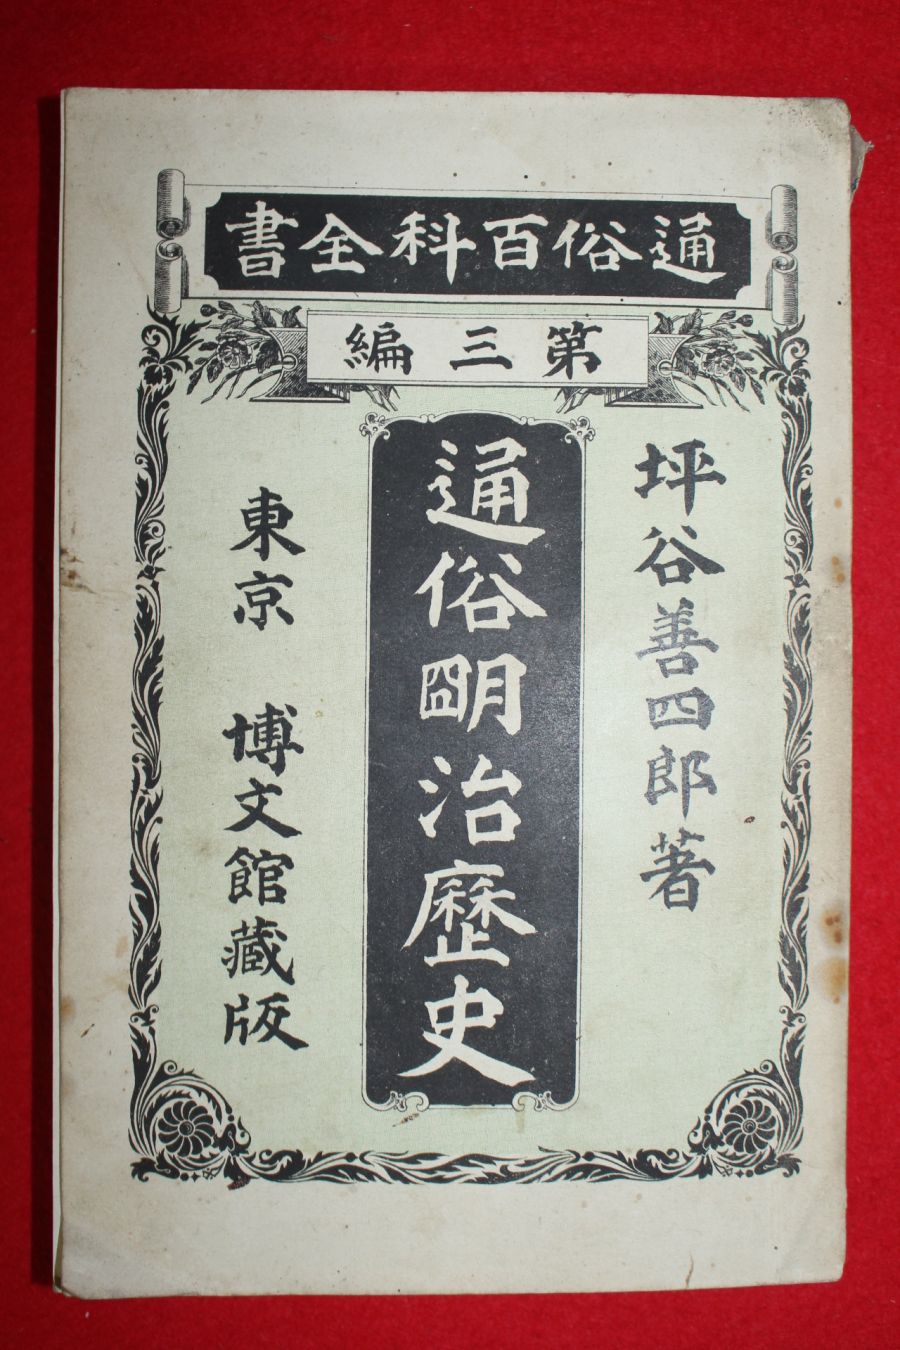 通俗百科全書
第三編
坪谷善四郎著
通俗明治歷史
東京 博文館藏版